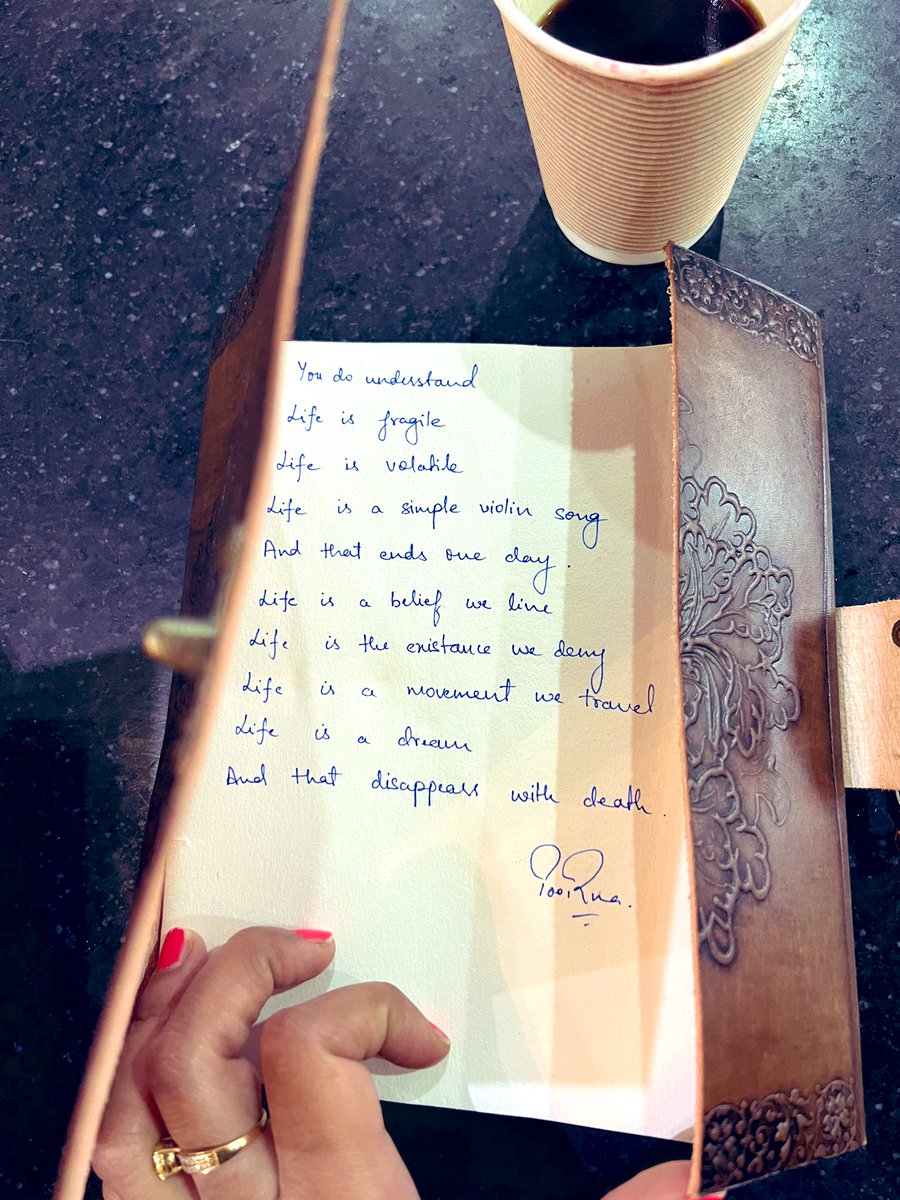 You do understand
Life is fragile
Life is volatile
Life is a simple violin song
And that ends one day.
Life is a belief we live
Life is the existance we deny
Life is a movement we travel
Life is a dream
And that disappears with death.